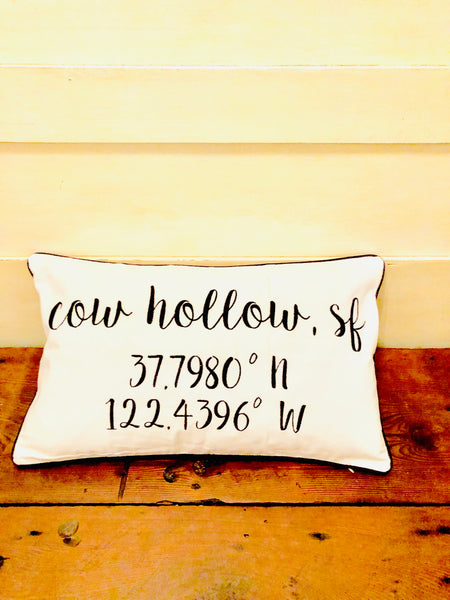 cow hollow, sf
37.7980° N
122.4396° W